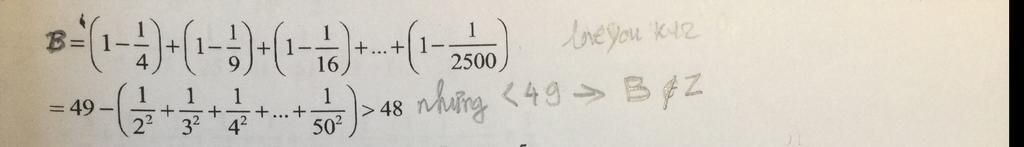 B = (1 - 1/4) + (1 - 1/9) + (1 - 1/16) + ... + (1 - 1/2500) love you
= 49 - (1/2² + 1/3² + 1/4² + ... + 1/50²) > 48 nhưng < 49 → B ∉ Z